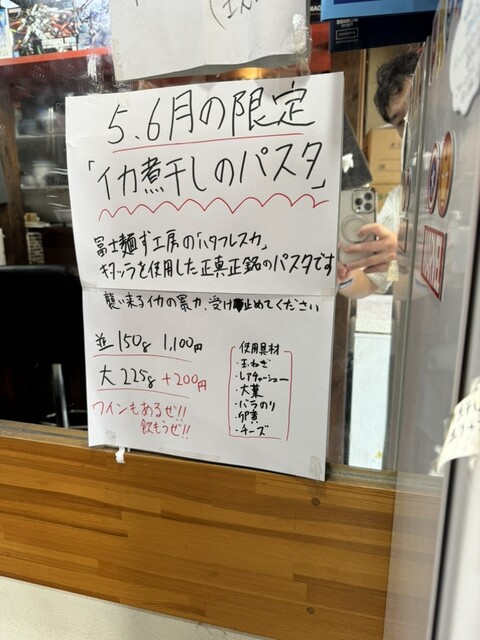 5.6月の限定
「イカ煮干しのパスタ」
冨士麺ず工房の「パタフレスカ」
キタッラを使用した正真正銘のパスタです
襲い来るイカの暴力、受け止めてください
並 150g 1,100円
大 225g +200円
ワインもあるぜ!!
飲もうぜ!!
使用具材
・玉ねぎ
・レアチャーシュー
・大葉
・バラのり
・卵黄
・チーズ